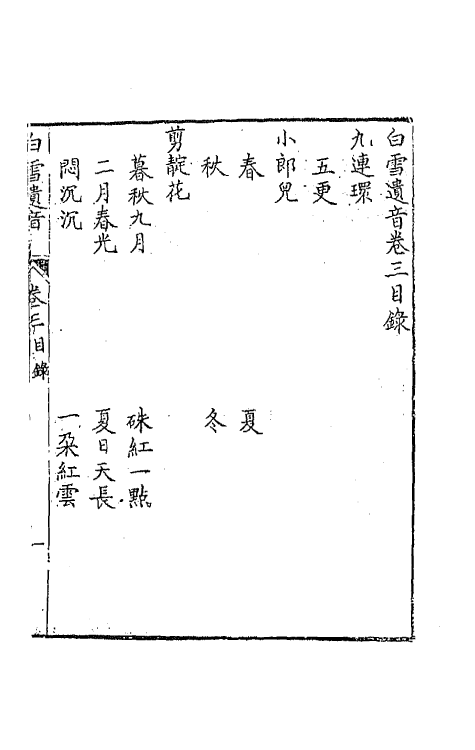 白雪遺音卷三目錄
九連環
五更
小郎兒
春 夏
秋 冬
剪靛花
暮秋九月 硃紅一點
二月春光 夏日天長
悶沉沉 一朶紅雲
白雪遺音 卷三目錄 一